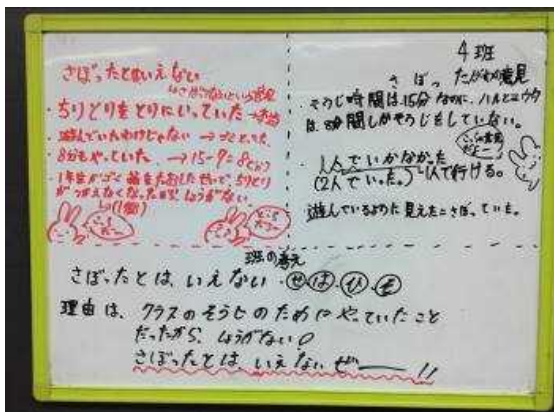 4班
さぼったとはいえない
・ちりとりをとりにいっていた
・遊んでいたわけじゃない → ゴミとった
・8分もやっていた → 15-7=8
・1年生がゴミ箱をたおしたせいで、ちりとり
がつかえなくなったから、しょうがない
さぼっ たがわの意見
・そうじ時間は15分なのに、ハルとユウタ
は、8分間しかそうじをしていない。
・1人でいかなかった
(2人でいった。) 1人で行ける。
遊んでいるように見えた=さぼっていた。
班の考え
さぼったとは、いえない
理由は、クラスのそうじのためにやっていたこと
だったから、しょうがない
さぼったとは、いえないぜー!!